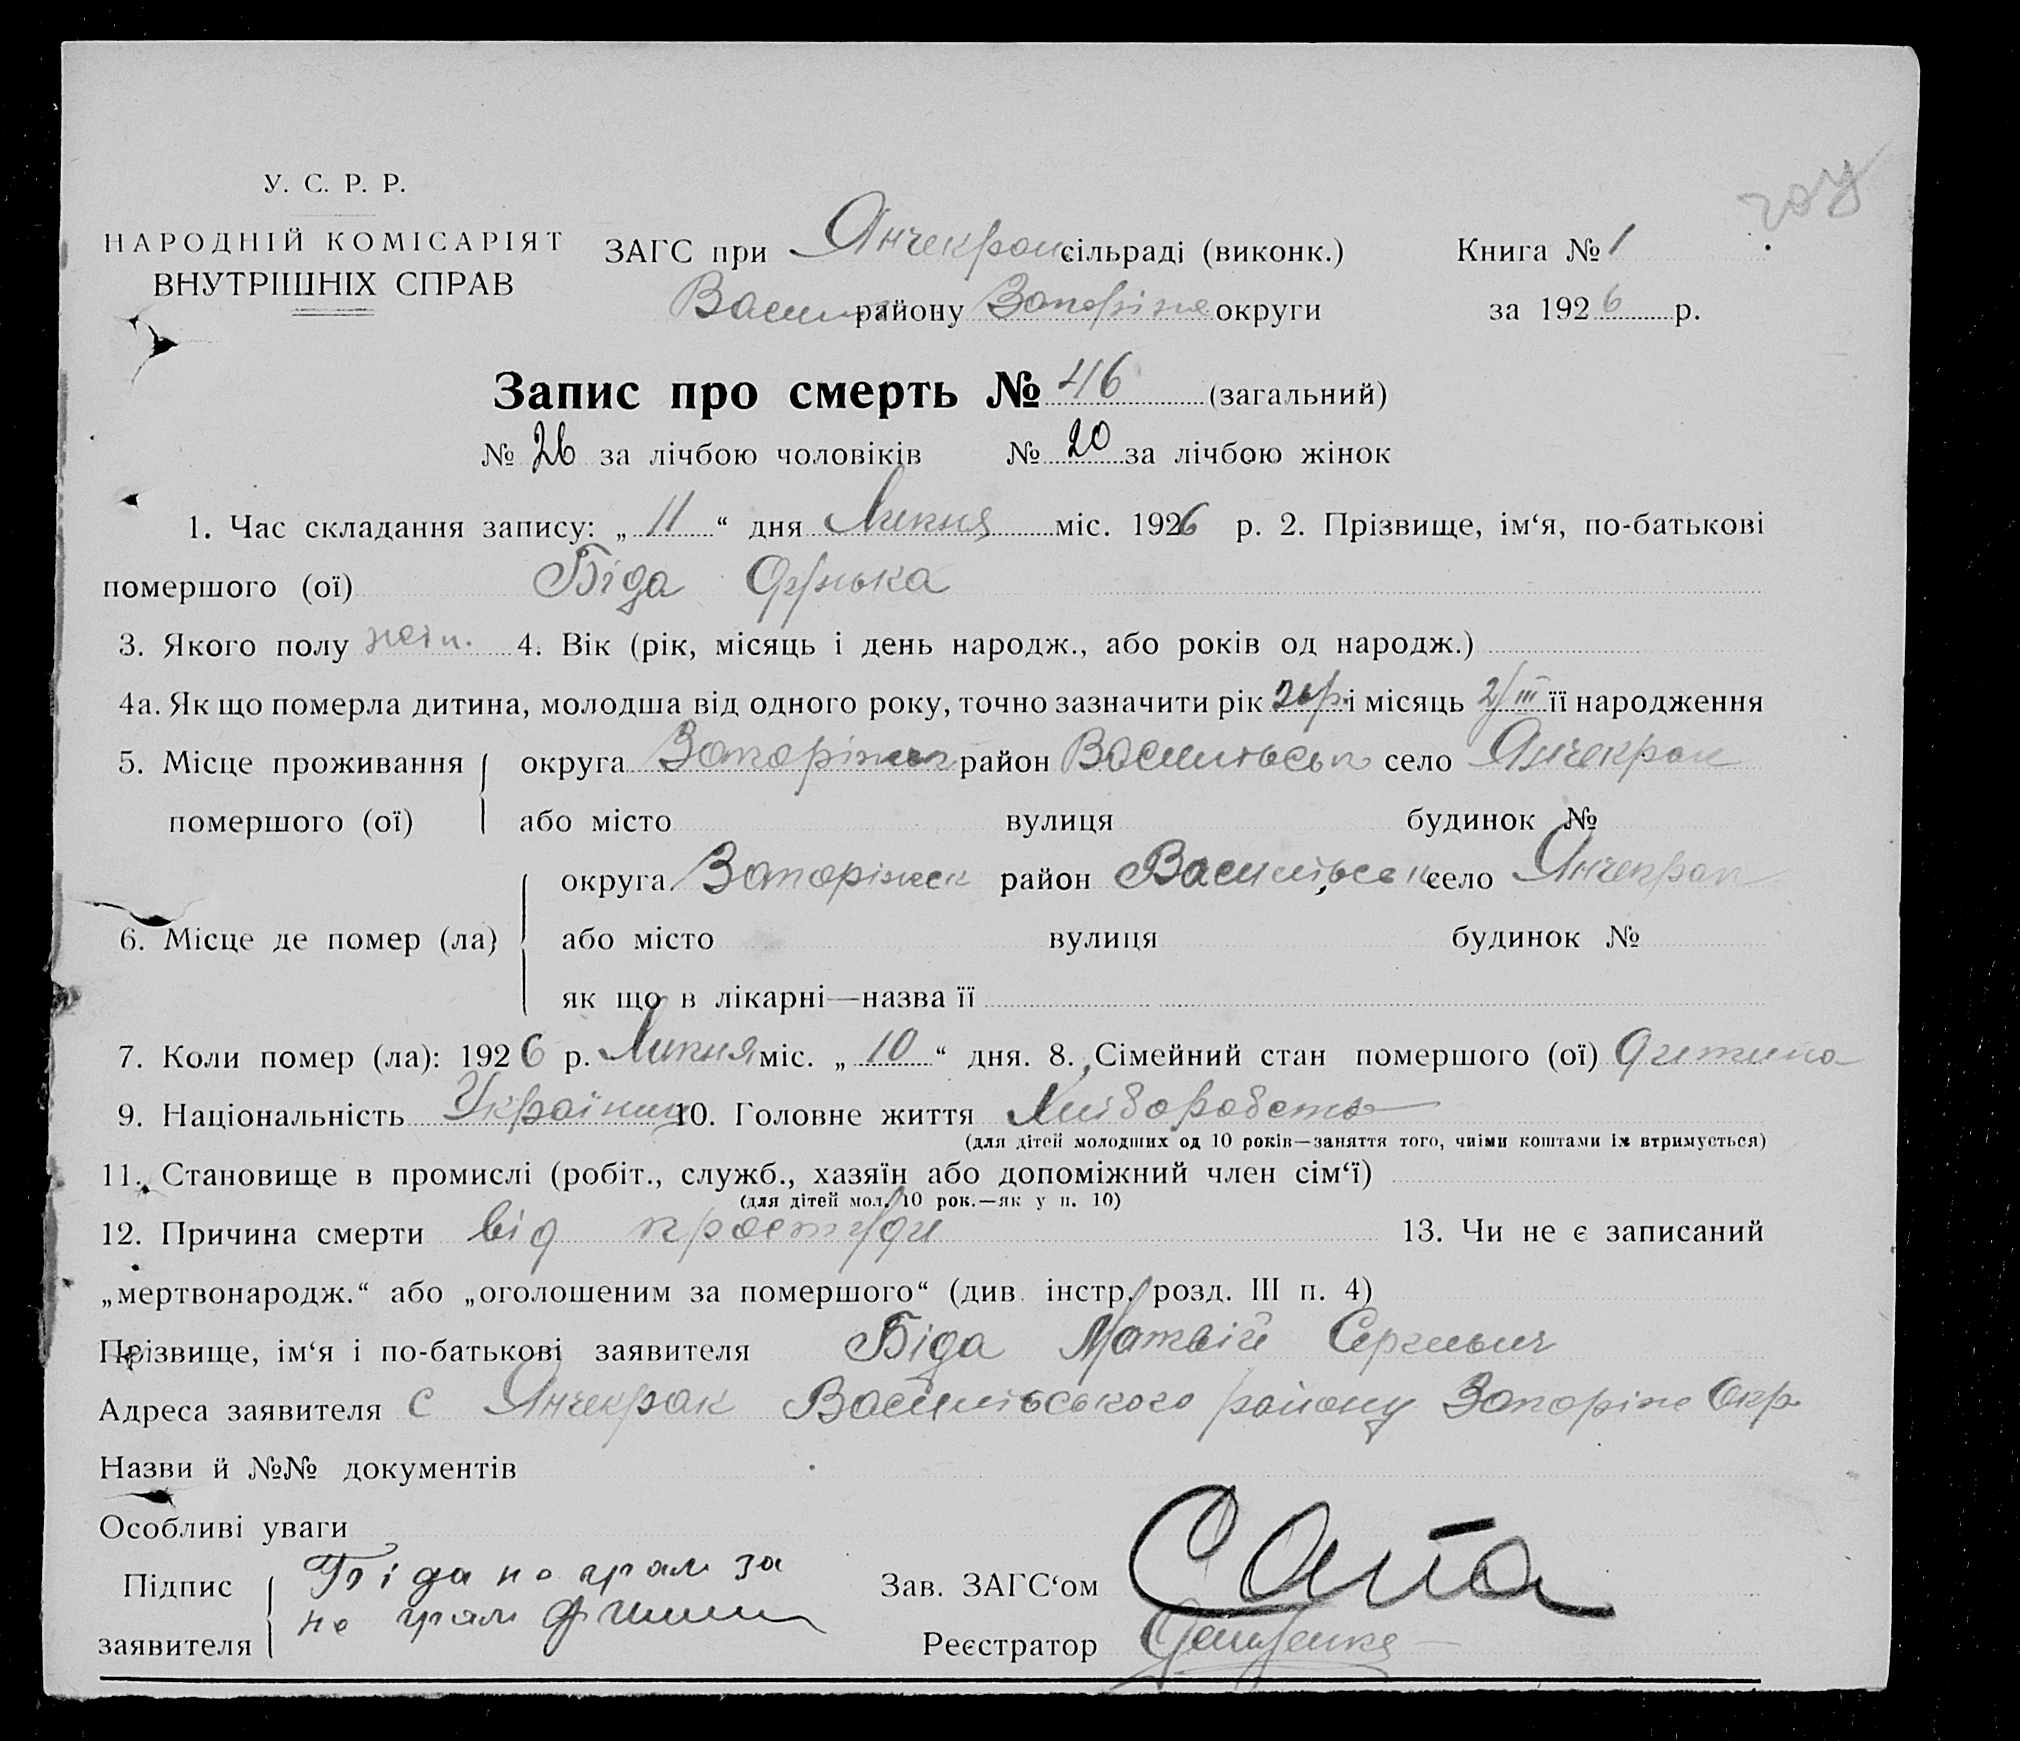 У. С. Р. Р.
НАРОДНІЙ КОМІСАРІЯТ
ВНУТРІШНІХ СПРАВ
ЗАГС при Янчекрак сільраді (виконк.) Книга № 1
Васил району Запоріж округи за 1926 р.
Запис про смерть № 46 (загальний)
№ 26 за лічбою чоловіків № 20 за лічбою жінок
1. Час складання запису: „ 11 “ дня Липня міс. 1926 р. 2. Прізвище, ім‘я, по-батькові
помершого (ої) Біда
3. Якого полу жін. 4. Вік (рік, місяць і день народж., або років од народж.)
4а. Як що померла дитина, молодша від одного року, точно зазначити рік 26 р. і місяць 2/III її народження
5. Місце проживання округа Запоріжськ район Васильськ село Янчекрак
помершого (ої) або місто вулиця будинок №
округа Запоріжск район Васильськ село Янчекрак
6. Місце де помер (ла) або місто вулиця будинок №
як що в лікарні—назва її
7. Коли помер (ла): 1926 р. Липня міс. „ 10 “ дня. 8. Сімейний стан помершого (ої) дитина
9. Національність 10. Головне життя Хліборобств
(для дітей молодших од 10 років—заняття того, чиїми коштами їх втримується)
11. Становище в промислі (робіт., служб., хазяїн або допоміжний член сім‘ї)
(для дітей мол. 10 рок.—як у п. 10)
12. Причина смерти від простуди 13. Чи не є записаний
„мертвонародж.“ або „оголошеним за помершого“ (див. інстр. розд. III п. 4)
Прізвище, ім‘я і по-батькові заявителя Біда Матвій Сергієвич
Адреса заявителя с Янчекрак Васильського району Запоріж Окр.
Назви й №№ документів
Особливі уваги
Підпис Біда не грам за Зав. ЗАГС‘ом
не грам
заявителя Реєстратор